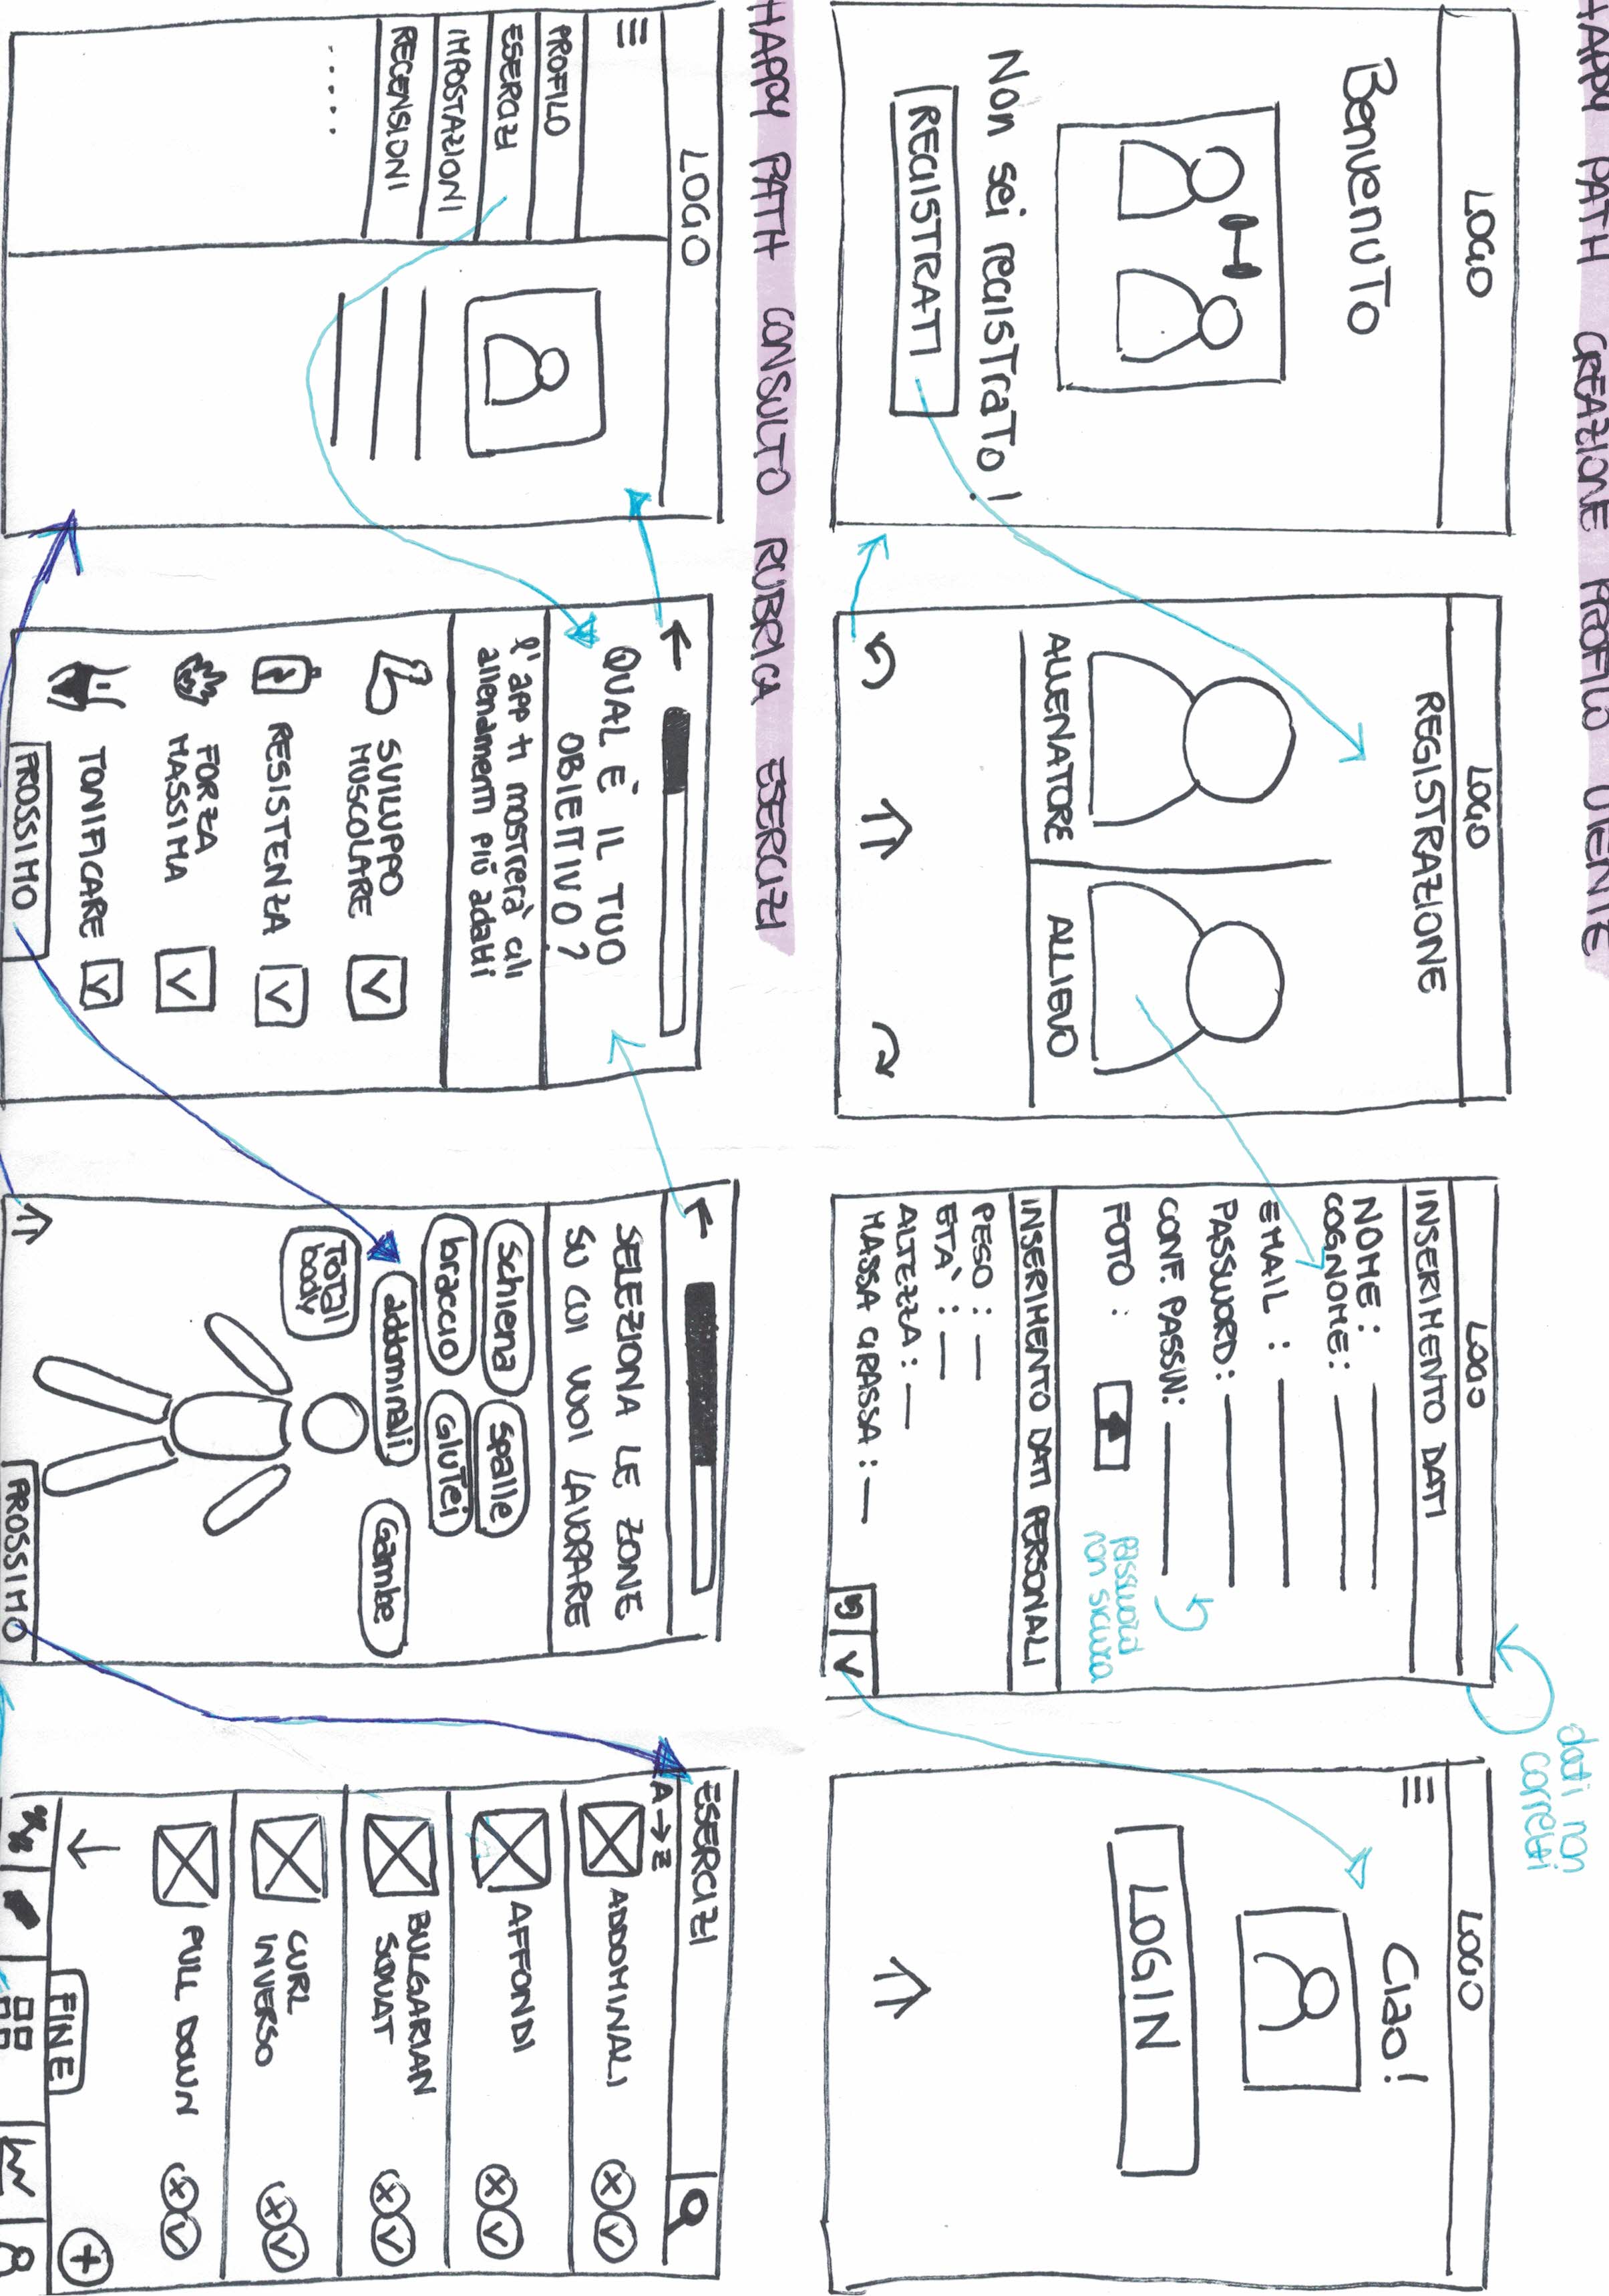 HAPPY PATH CREAZIONE PROFILO UTENTE
LOGO
Benvenuto
Non sei registrato!
REGISTRATI
LOGO
REGISTRAZIONE
ALLENATORE
ALLIEVO
LOGO
INSERIMENTO DATI
NOME:
COGNOME:
EMAIL:
PASSWORD:
CONF. PASSW:
FOTO:
password
non sicura
INSERIMENTO DATI PERSONALI
PESO:
ETÀ:
ALTEZZA:
MASSA GRASSA:
dati non
corretti
LOGO
Ciao!
LOGIN
HAPPY PATH CONSULTO RUBRICA ESERCIZI
LOGO
PROFILO
ESERCIZI
IMPOSTAZIONI
RECENSIONI
.....
QUAL È IL TUO
OBIETTIVO?
l'app ti mostrerà gli
allenamenti più adatti
SVILUPPO
MUSCOLARE
RESISTENZA
FORZA
MASSIMA
TONIFICARE
PROSSIMO
SELEZIONA LE ZONE
SU CUI VUOI LAVORARE
Schiena
Spalle
braccio
Glutei
addominali
Gambe
Total
body
PROSSIMO
ESERCIZI
A→Z
ADDOMINALI
AFFONDI
BULGARIAN
SQUAT
CURL
INVERSO
PULL DOWN
FINE